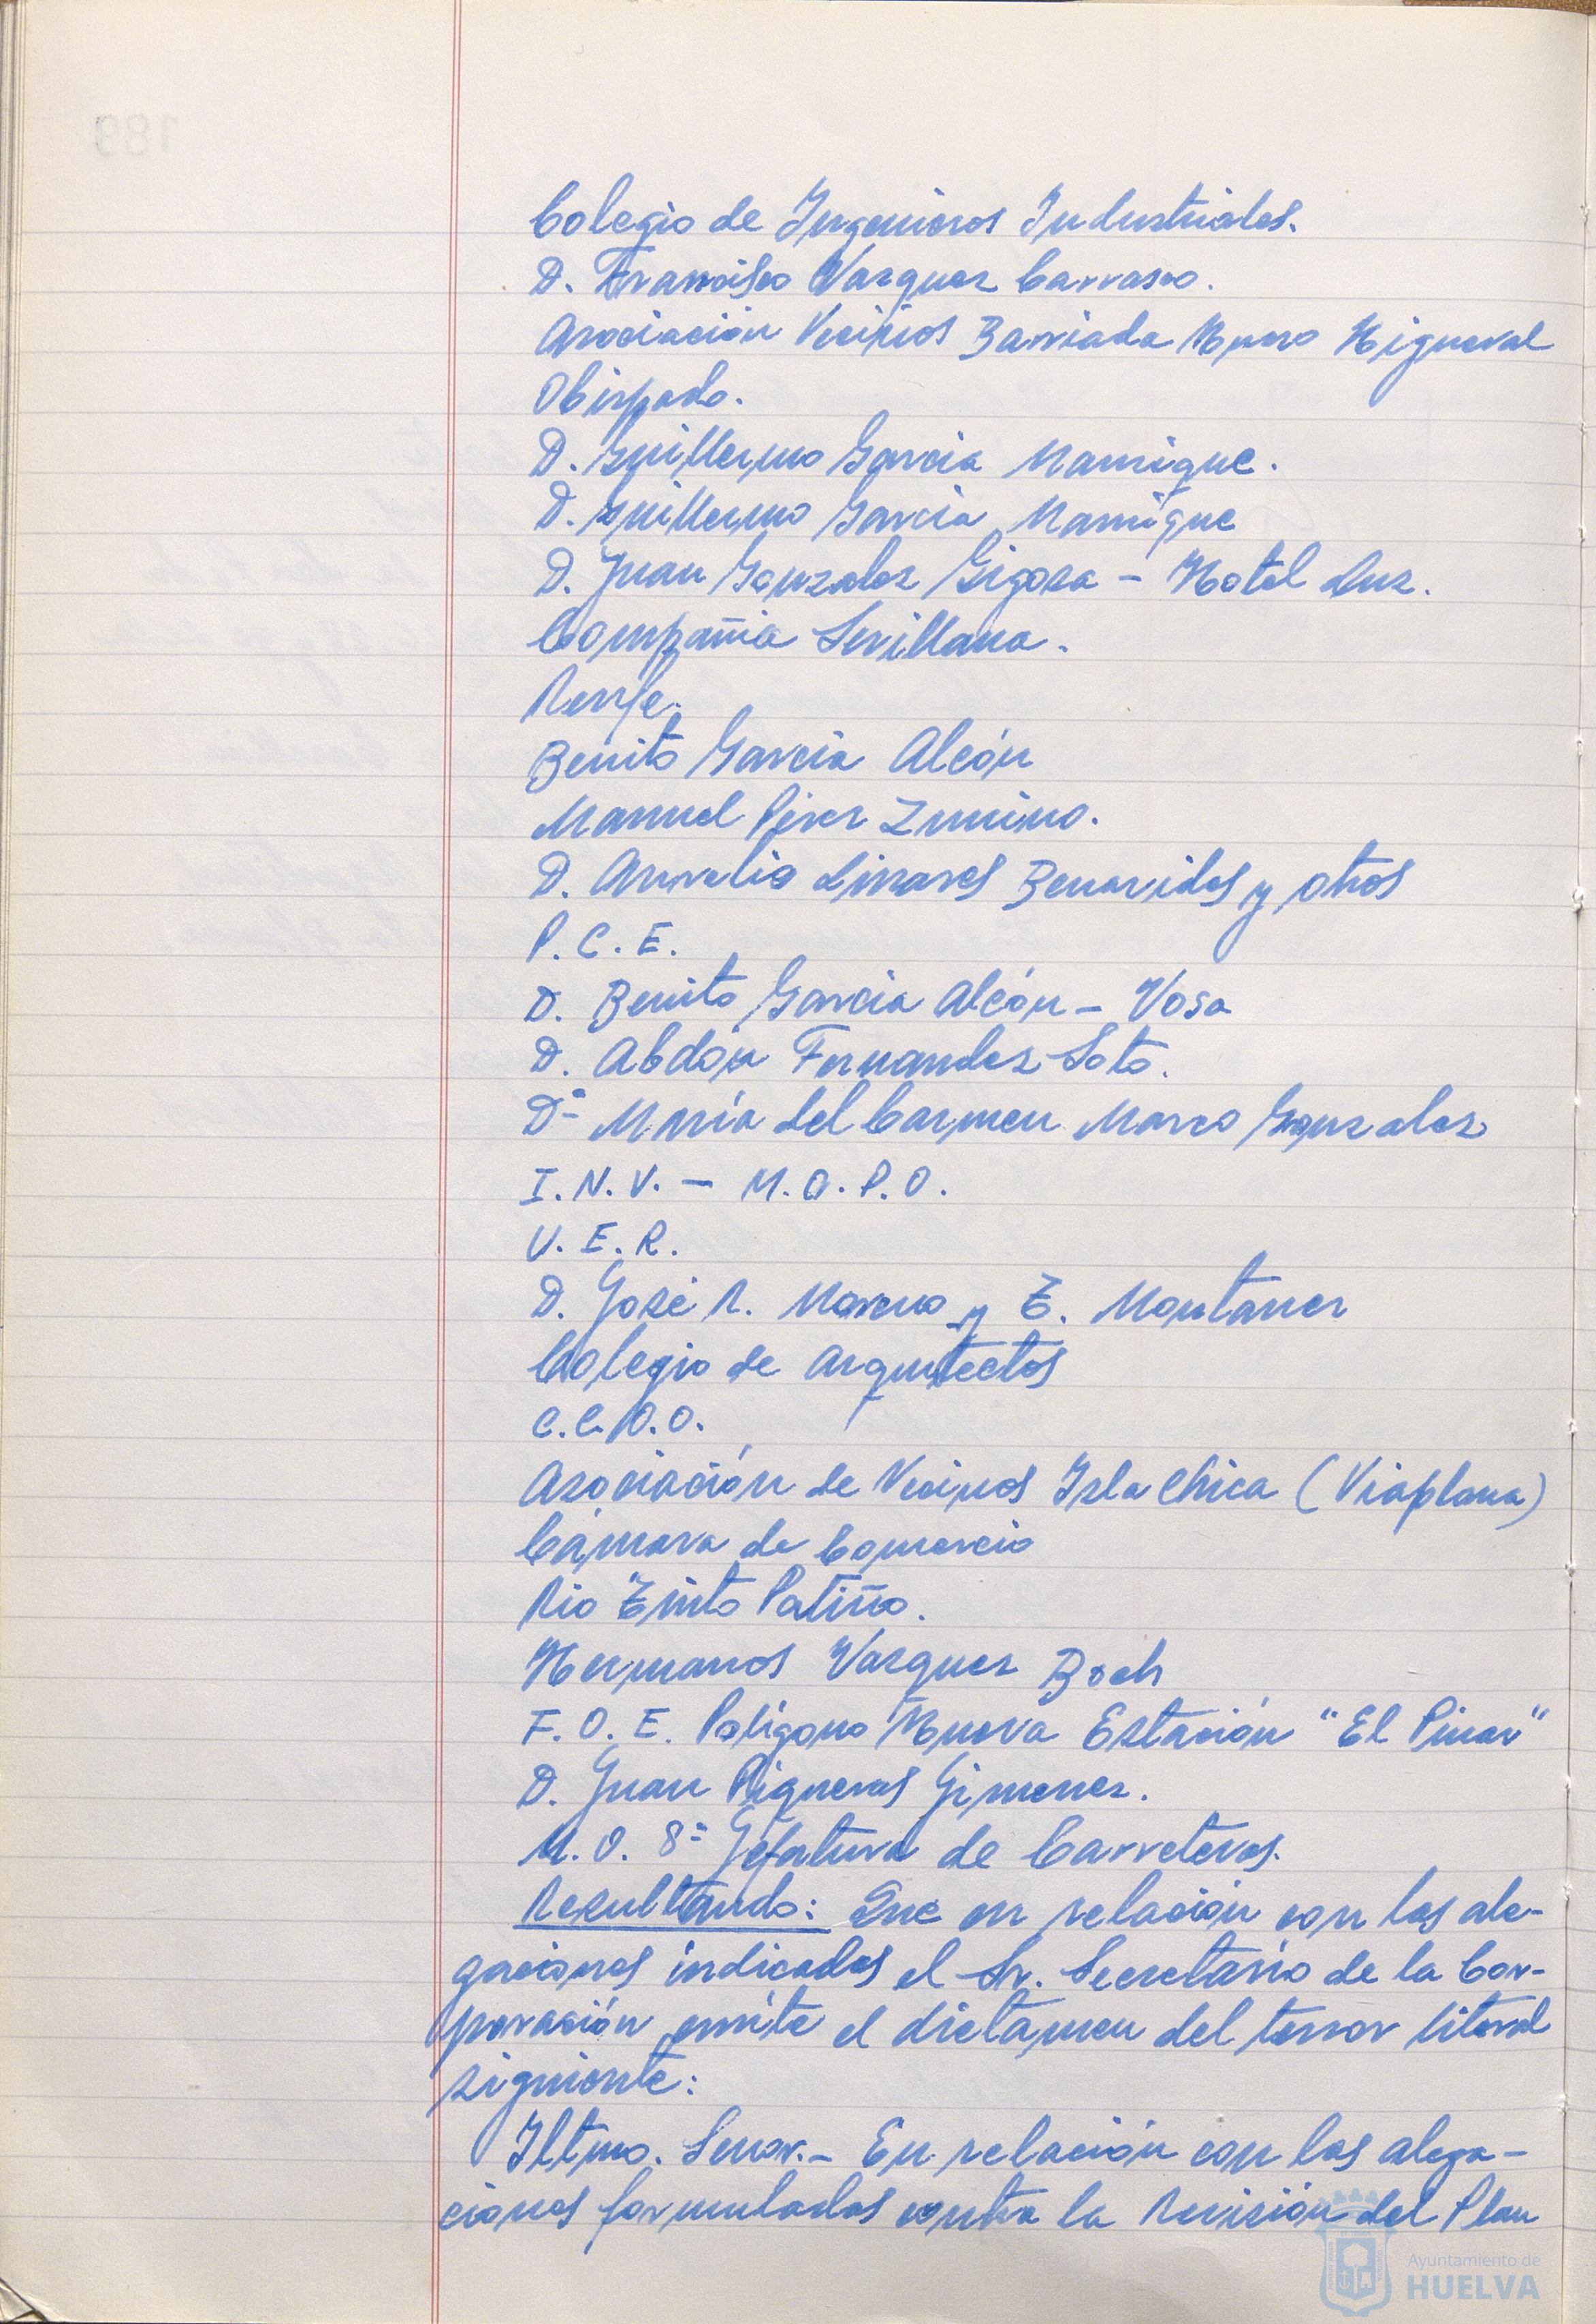 Colegio de Ingenieros Industriales.
D. Francisco Vazquez Carrasco.
Asociación Vecinos Barriada Nuevo Higueral
Obispado.
D. Guillermo Garcia Manrique.
D. Guillermo Garcia Manrique
D. Juan Gonzalez Gigosa - Hotel Luz.
Compañia Sevillana.
Renfe.
Benito Garcia Alcón
Manuel Pérez Zunino.
D. Aurelio Linares Benavides y otros
P.C.E.
D. Benito Garcia Alcón - Vosa
D. Abdón Fernandez Soto.
Dª María del Carmen Marco Gonzalez
I.N.V. - M.O.P.O.
V.E.R.
D. José R. Moreno y T. Montaner
Colegio de Arquitectos
C.C.O.O.
Asociación de Vecinos Isla Chica (Viaplana)
Cámara de Comercio
Rio Tinto Patiño.
Hermanos Vazquez Boch
F.O.E. Polígono Nueva Estación "El Pinar"
D. Juan Gimenez.
M.O. 8ª Jefatura de Carreteras.
Resultando: Que en relación con las ale-
gaciones indicadas el Sr. Secretario de la Cor-
poración emite el dictamen del tenor literal
siguiente:
Iltmo. Señor.- En relación con las alega-
ciones formuladas contra la Revisión del Plan
189
Ayuntamiento de
HUELVA